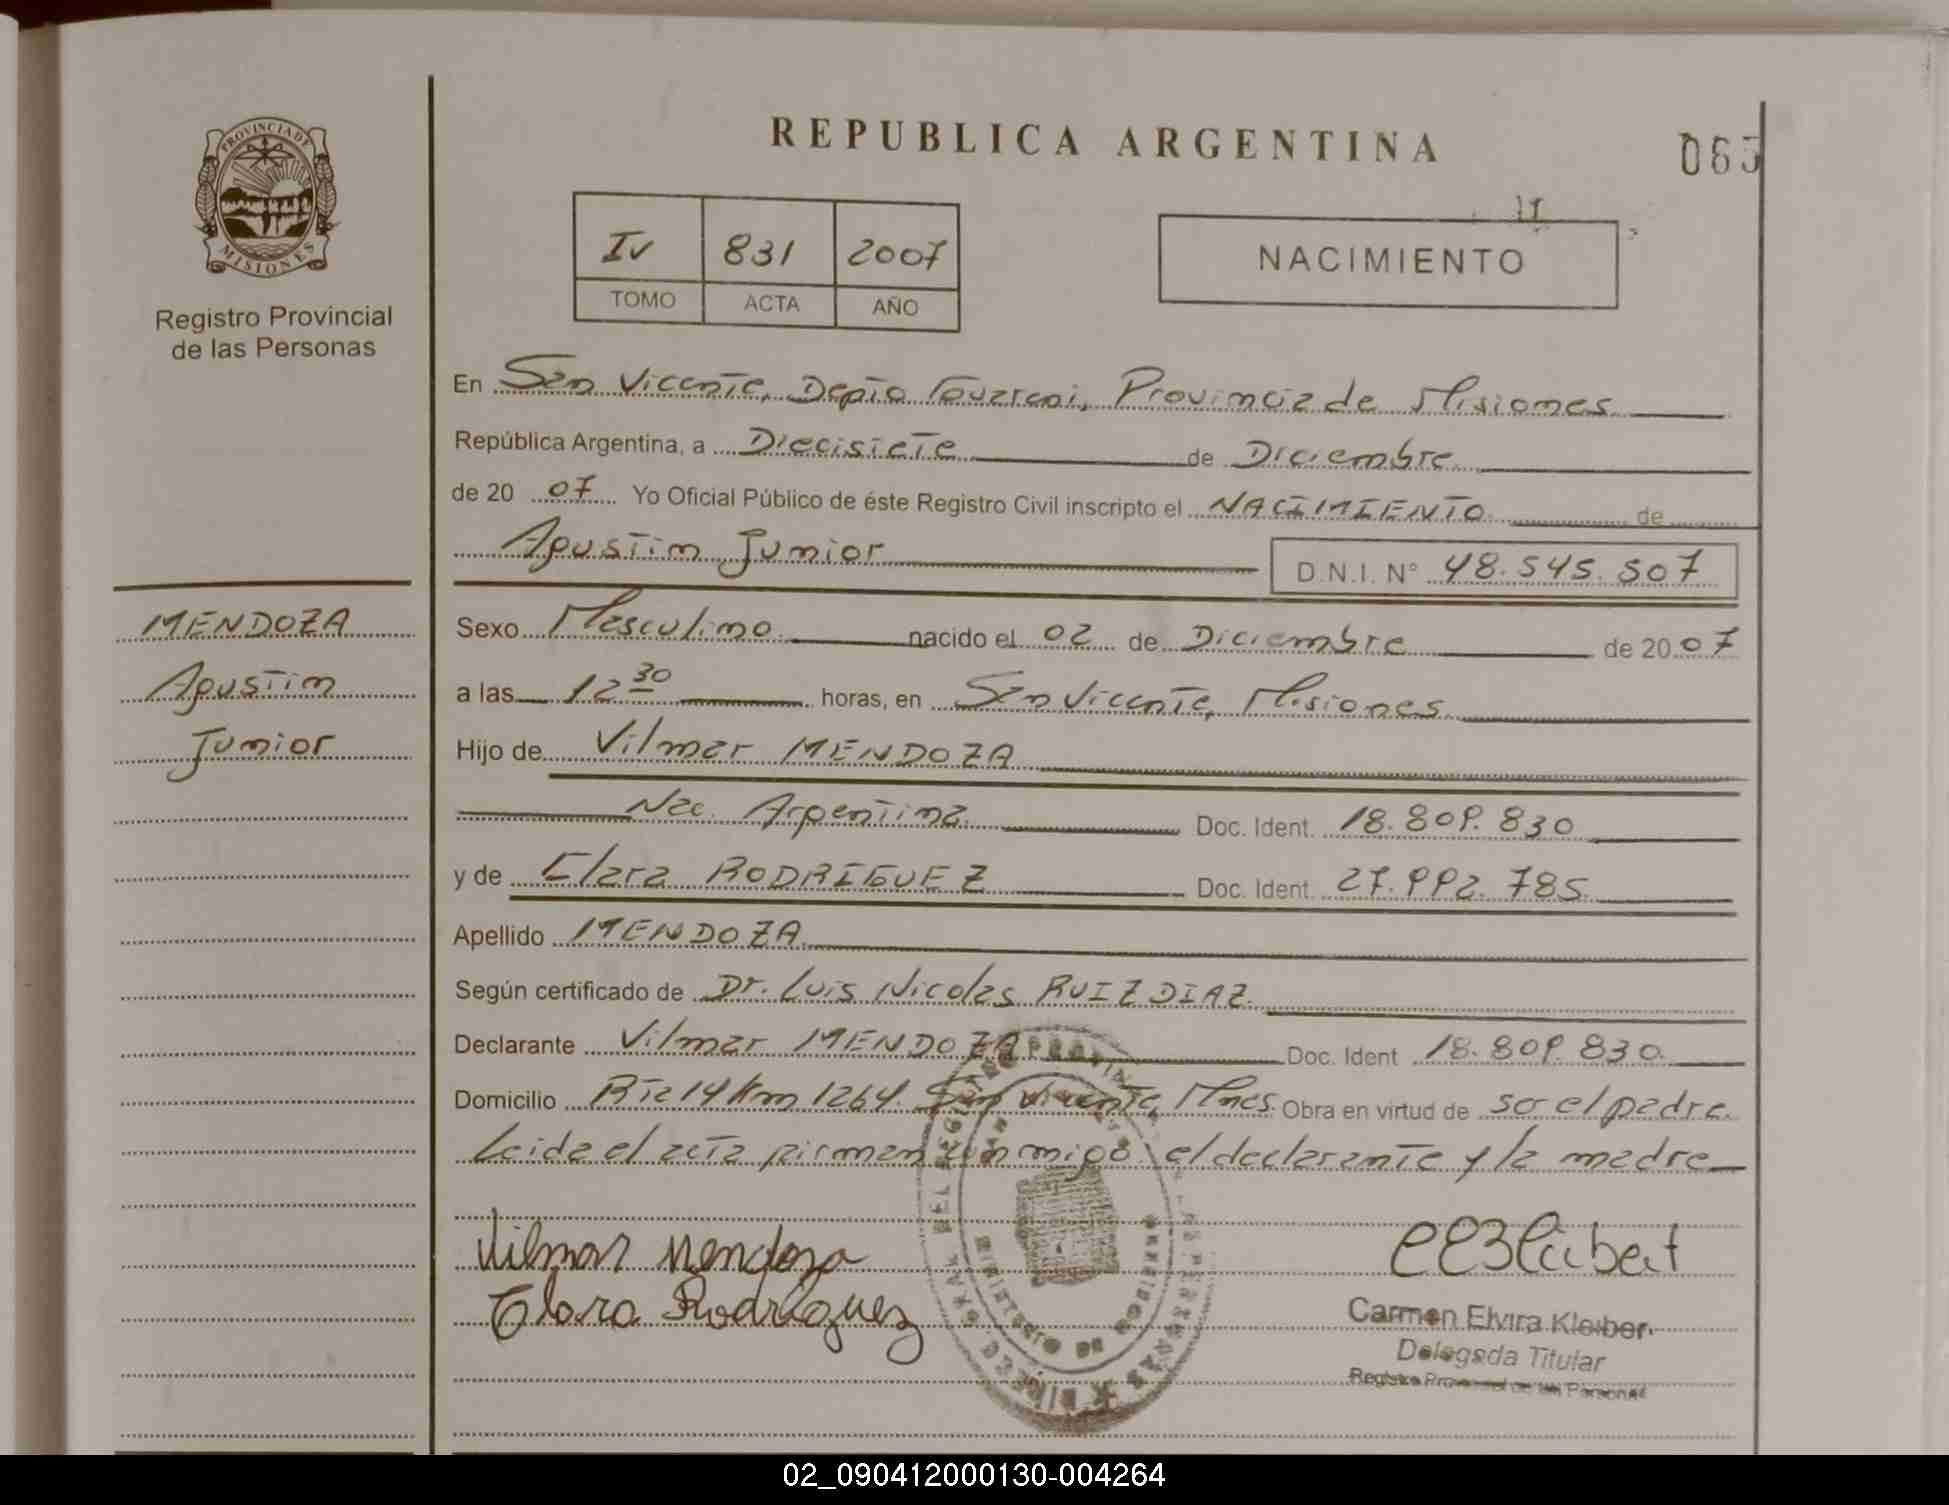 PROVINCIA DE
MISIONES
Registro Provincial
de las Personas
MENDOZA
Agustin
Junior
REPUBLICA ARGENTINA
065
IV 831 2007
TOMO ACTA AÑO
NACIMIENTO
En San Vicente, Depto Guarani, Provincia de Misiones
República Argentina, a Diecisiete de Diciembre
de 20 07 Yo Oficial Público de éste Registro Civil inscripto el NACIMIENTO de
Agustin Junior D.N.I. N° 48.545.507
Sexo Masculino nacido el 02 de Diciembre de 20 07
a las 12 30 horas, en San Vicente, Misiones
Hijo de Vilmar MENDOZA
Nac. Argentina Doc. Ident. 18.809.830
y de Clara RODRIGUEZ Doc. Ident. 27.992.785
Apellido MENDOZA
Según certificado de Dr. Luis Nicolas RUIZ DIAZ
Declarante Vilmar MENDOZA Doc. Ident 18.809.830
Domicilio Rta 14 Km 1264. San Vicente, Mnes. Obra en virtud de ser el padre.
Leida el acta firman conmigo el declarante y la madre
Vilmar Mendoza
Clara Rodriguez
Carmen Elvira Kleiber
Delegada Titular
Registro Provincial de las Personas
02_090412000130-004264